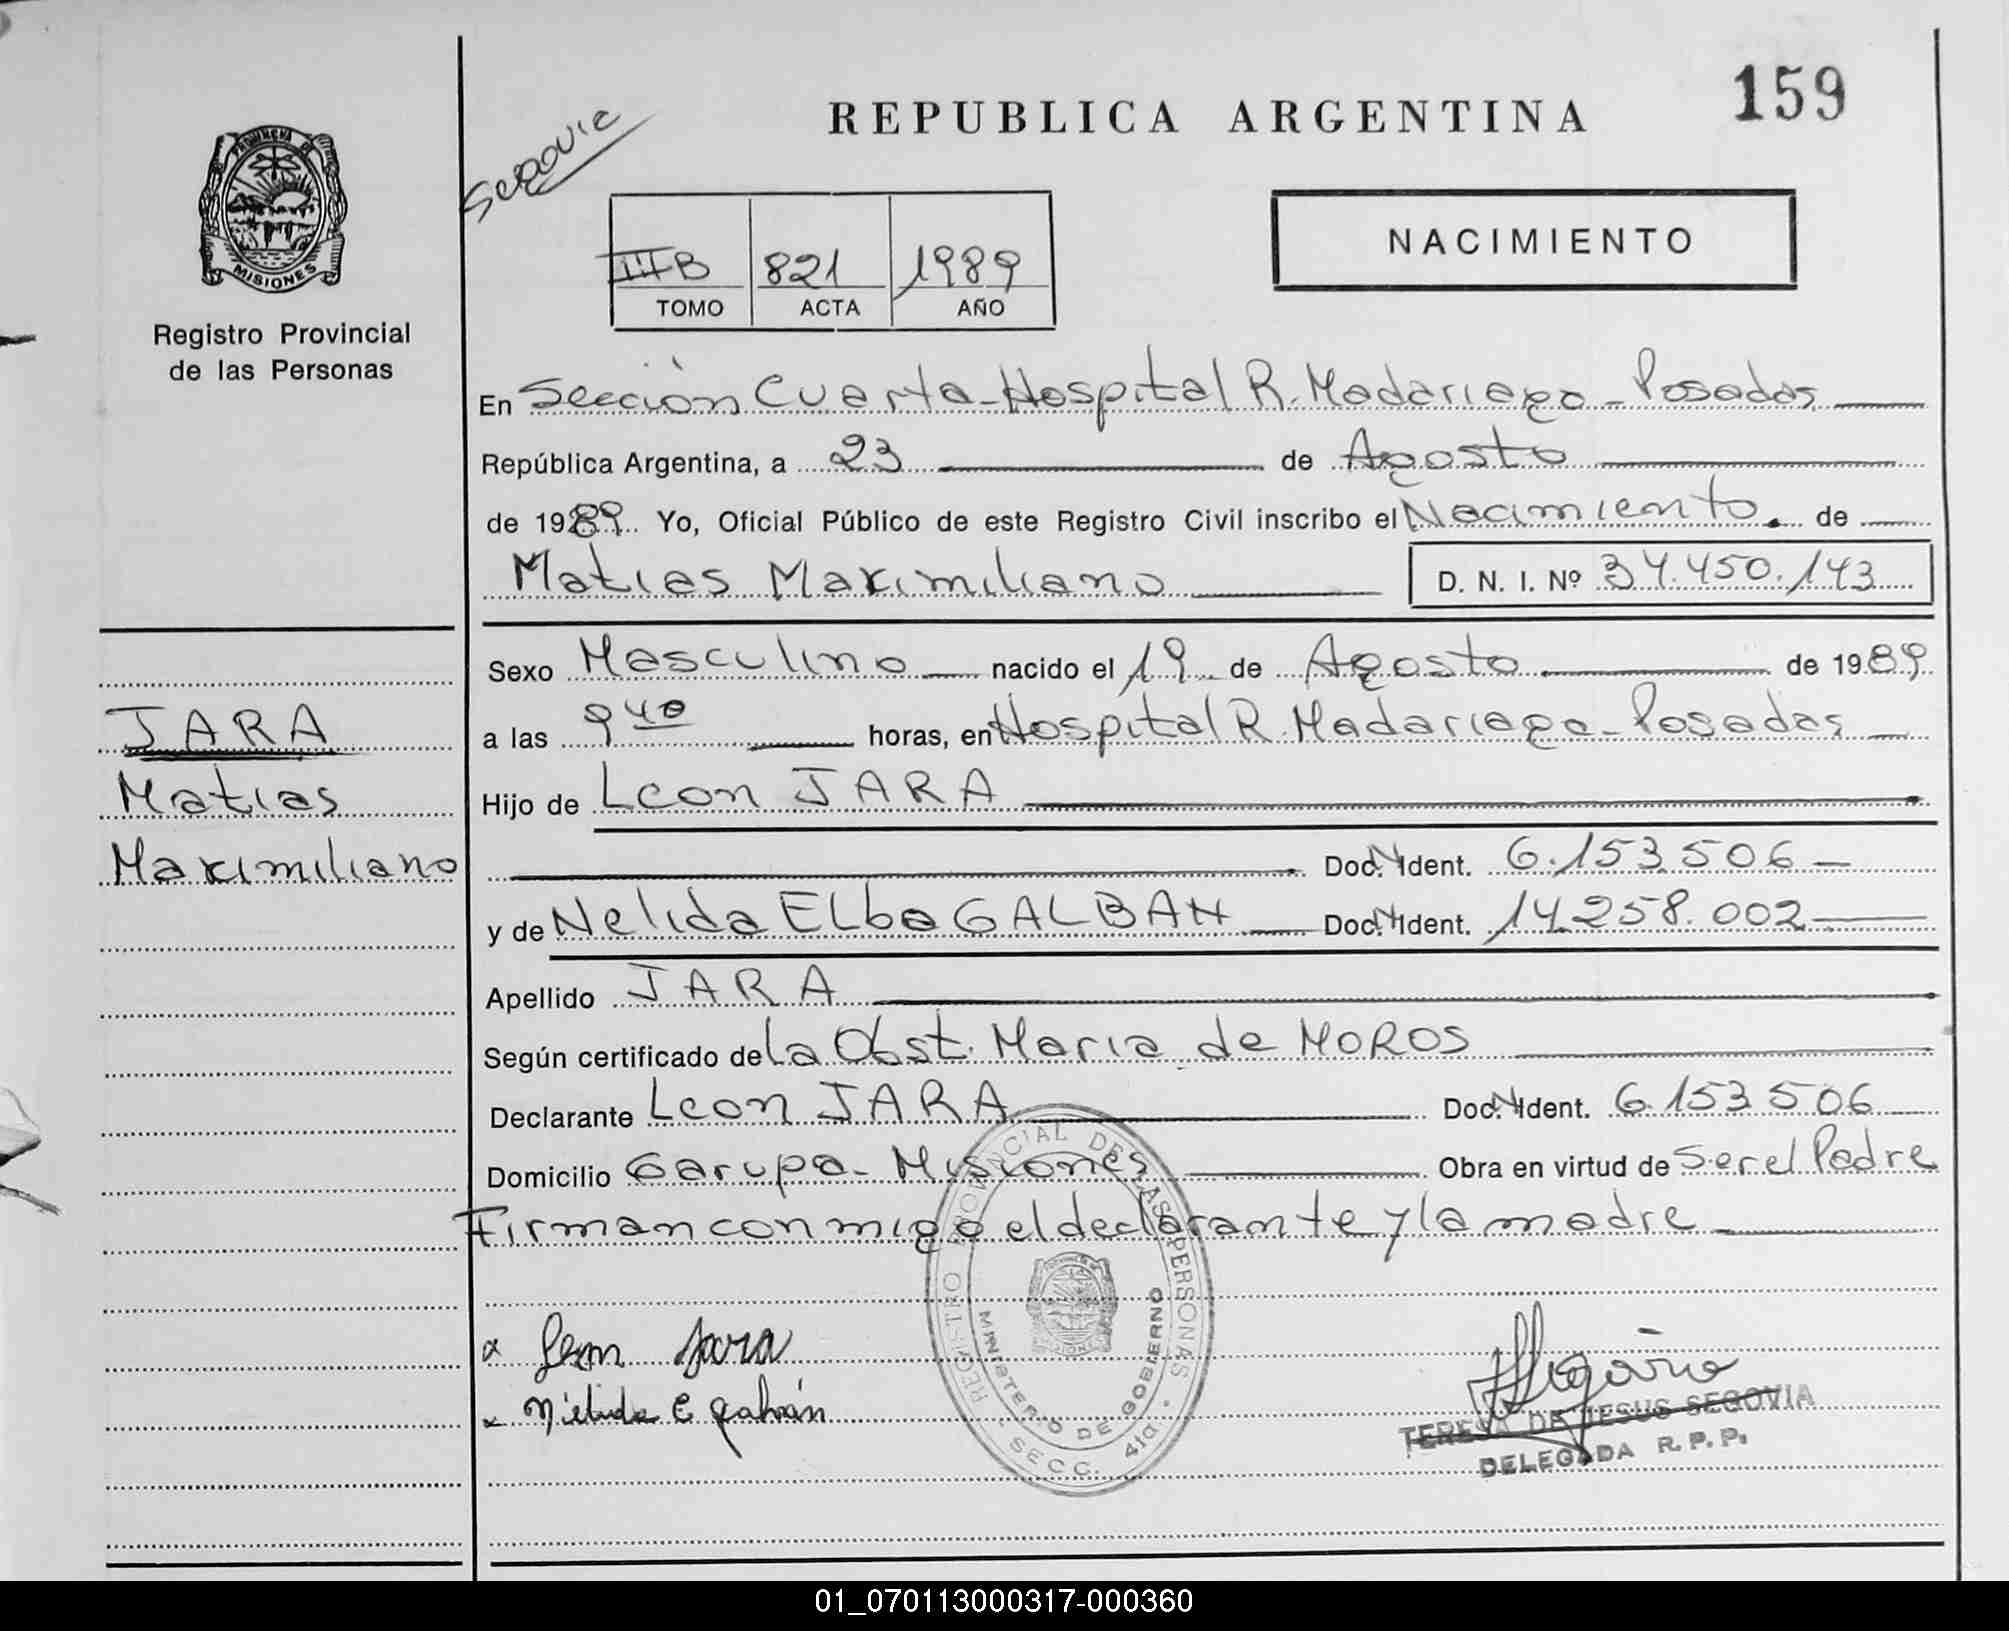 REPUBLICA ARGENTINA
159
Segovia
PROVINCIA DE
MISIONES
Registro Provincial
de las Personas
III B 821 1989
TOMO ACTA AÑO
NACIMIENTO
En Sección Cuarta - Hospital R. Madariaga - Posadas
República Argentina, a 23 de Agosto
de 1989 Yo, Oficial Público de este Registro Civil inscribo el Nacimiento de
Matias Maximiliano D. N. I. Nº 34.450.143
Sexo Masculino nacido el 19 de Agosto de 1989
a las 9 40 horas, en Hospital R. Madariaga - Posadas
Hijo de Leon JARA
Doc. N Ident. 6.153.506
y de Nelida ELba GALBAN Doc. N Ident. 14.258.002
Apellido JARA
Según certificado de la Obst. Maria de MOROS
Declarante Leon JARA Doc. N Ident. 6.153 506
Domicilio Garupa - Misiones Obra en virtud de Ser el Padre
Firman conmigo el declarante y la madre
JARA
Matias
Maximiliano
x Leon Jara
x Nelida E galván
REGISTRO PROVINCIAL DE LAS PERSONAS
MINISTERIO DE GOBIERNO
SECC. 4ta.
Segovia
TERESA DE JESUS SEGOVIA
DELEGADA R. P. P.
01_070113000317-000360